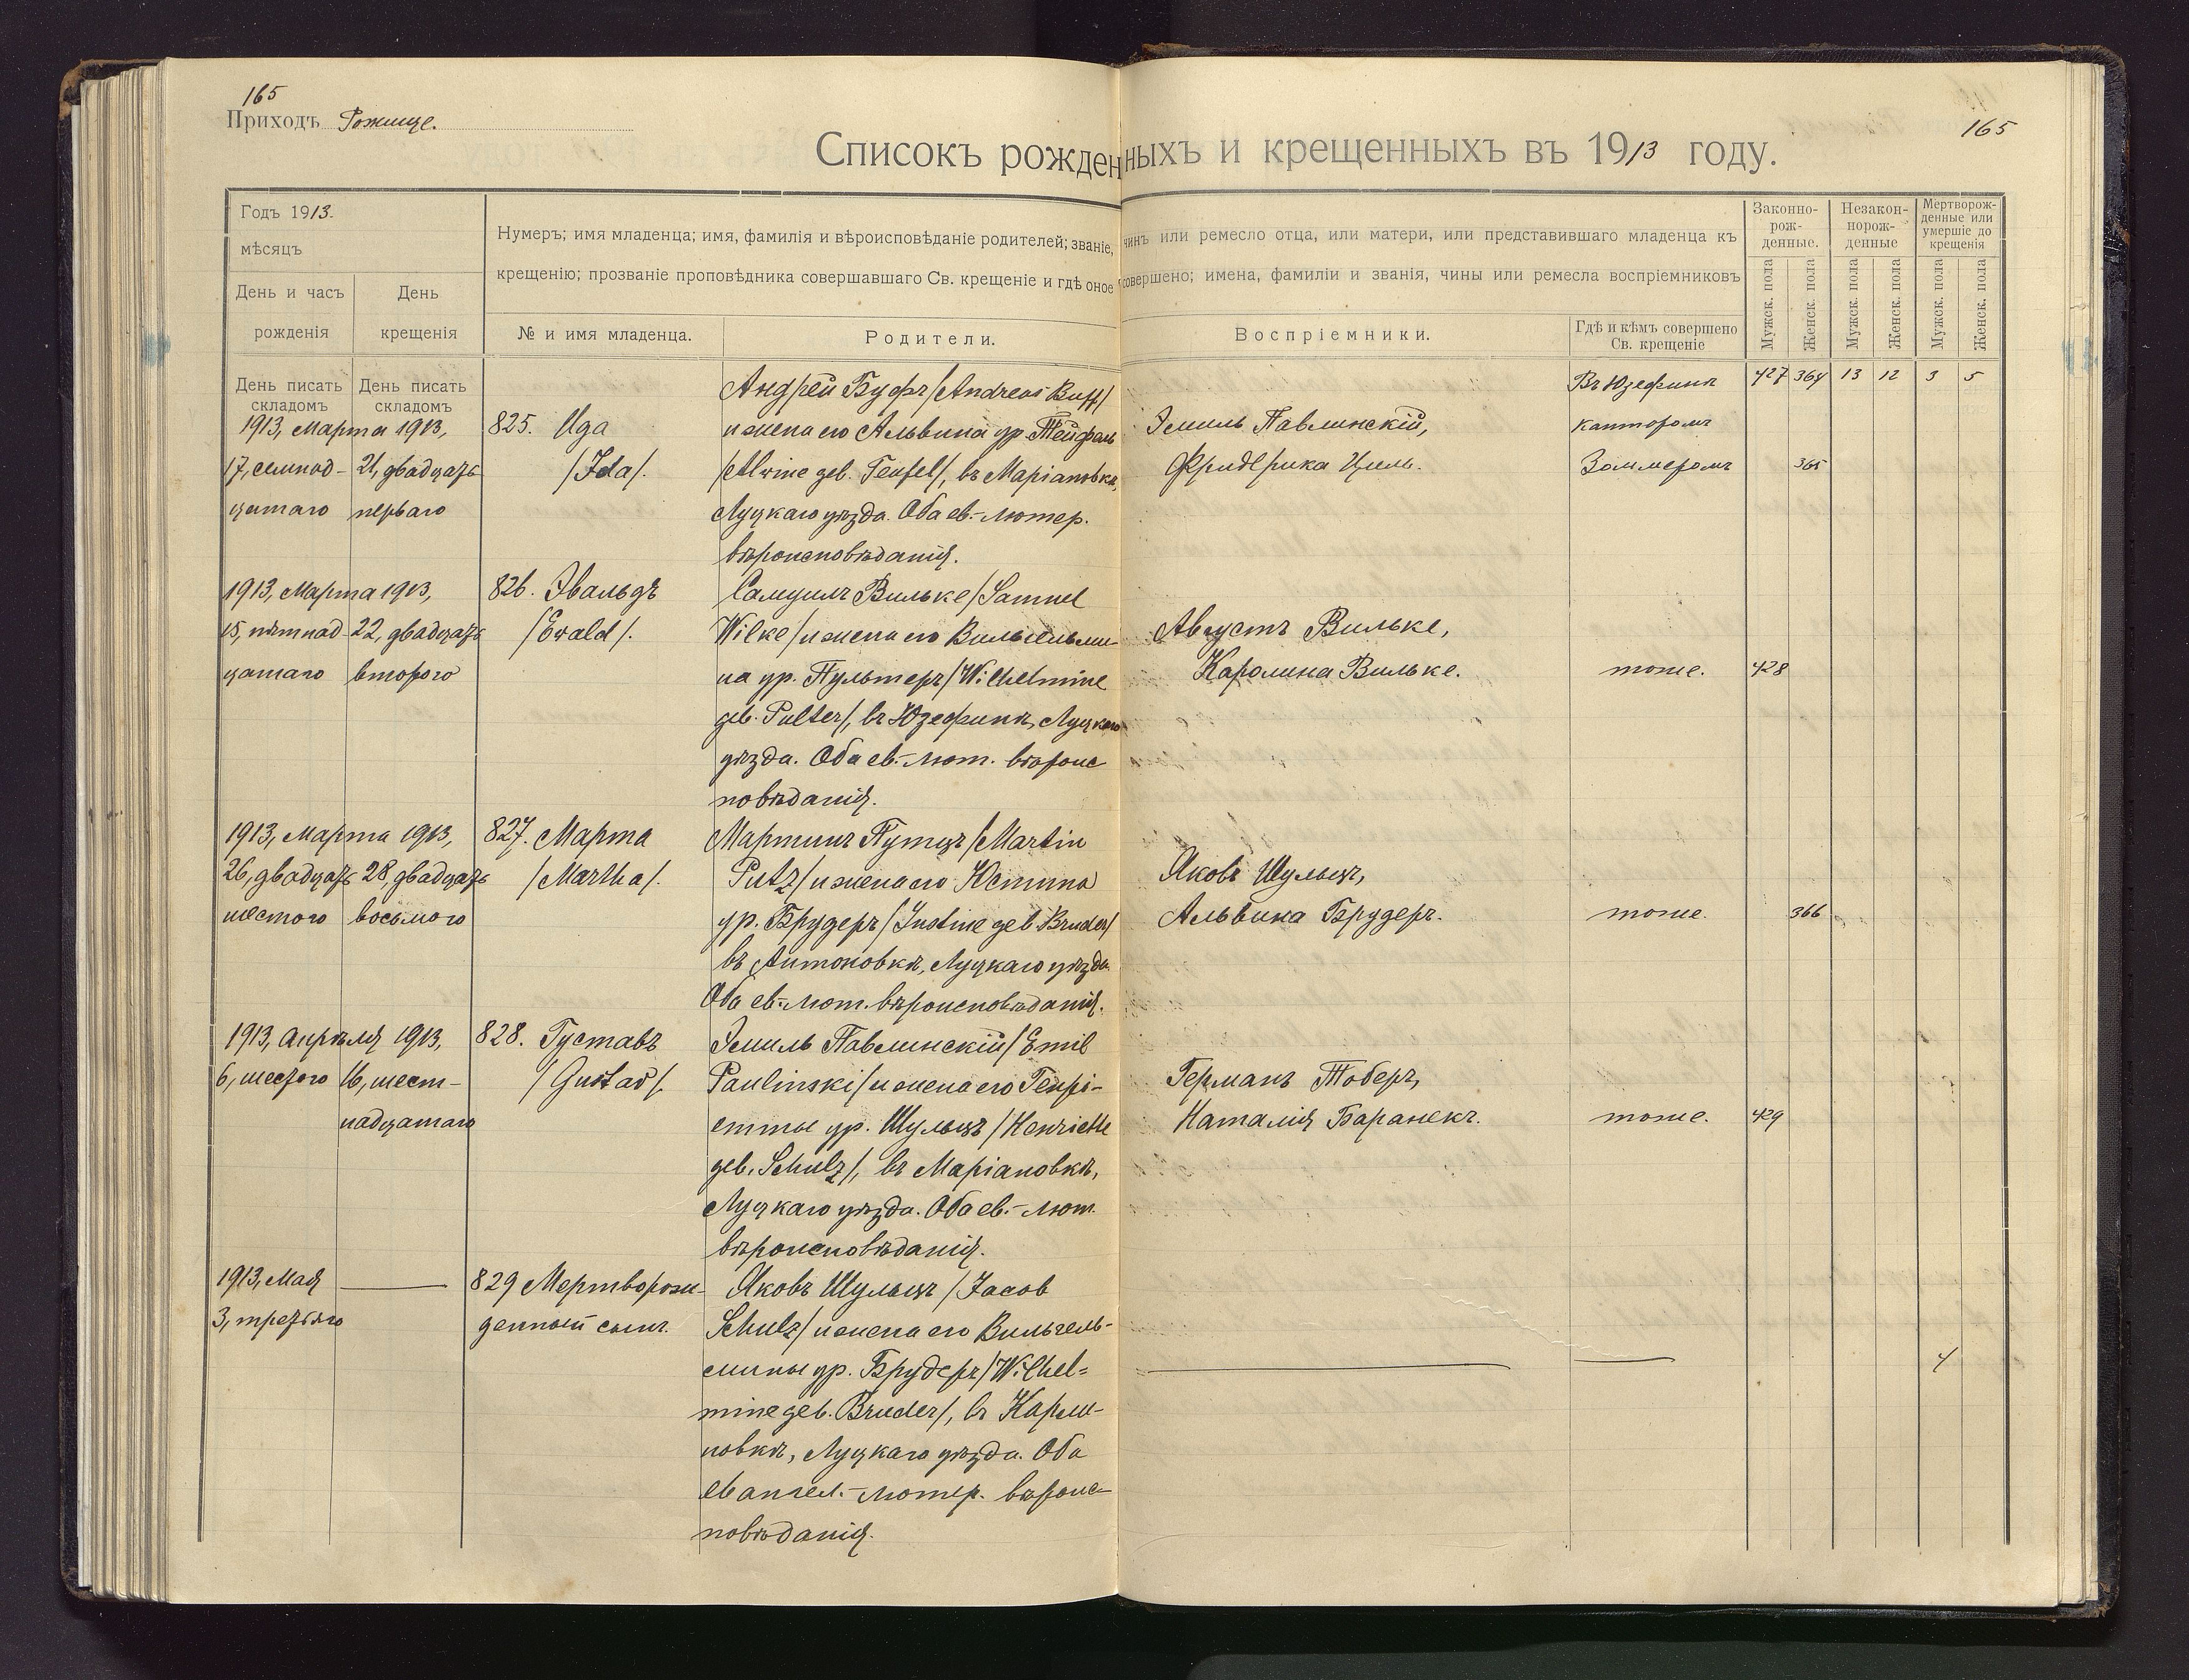 165
Приходъ Рожище.
165
Списокъ рожденныхъ и крещенныхъ въ 1913 году.
Годъ 1913.
мѣсяцъ
День и часъ рожденія
День крещенія
Нумеръ; имя младенца; имя, фамилія и вѣроисповѣданіе родителей; званіе, чинъ или ремесло отца, или матери, или представившаго младенца къ
крещенію; прозваніе проповѣдника совершавшаго Св. крещеніе и гдѣ оное совершено; имена, фамиліи и званія, чины или ремесла воспріемниковъ
№ и имя младенца.
Родители.
Воспріемники.
Гдѣ и кѣмъ совершено
Св. крещеніе
Законно-
рож-
денные.
Незакон-
норож-
денные
Мертворож-
денные или
умершіе до
крещенія
Мужск. пола
Женск. пола
Мужск. пола
Женск. пола
Мужск. пола
Женск. пола
День писать
складомъ
День писать
складомъ
427 364 13 12 3 5
1913, Марта 1913,
17, семнад-
цатаго
21, двадцать
перваго
825. Ида
/Ida/.
Андрей Буфъ /Andreas Buff/
и жена его Альвина ур. Тейфель
/Alwine geb. Teufel/, въ Маріановкѣ,
Луцкаго уѣзда. Оба ев.-лютер.
вѣроисповѣданія.
Эмиль Павлинскій,
Фридерика Циль.
Въ Юзефинѣ
канторомъ
Зоммеромъ
365
1913, Марта 1913,
15, пятнад-
цатаго
22, двадцать
второго
826. Эвальдъ
/Ewald/.
Самуилъ Вильке /Samuel
Wilke/ и жена его Вильгельми-
на ур. Пультеръ /Wilhelmine
geb. Pulter/, въ Юзефинѣ, Луцкаго
уѣзда. Оба ев.-лют. вѣроис
повѣданія.
Августъ Вильке,
Каролина Вильке.
тоже.
428
1913, Марта 1913,
26, двадцать
шестого
28, двадцать
восьмого
827. Марта
/Martha/.
Мартинъ Путцъ /Martin
Putz/ и жена его Юстина
ур. Брудеръ /Justine geb. Bruder/
въ Антоновкѣ, Луцкаго уѣзда.
Оба ев.-лют. вѣроисповѣданія.
Яковъ Шульцъ,
Альвина Брудеръ.
тоже.
366
1913, Апрѣля 1913,
6, шестого
16, шест-
надцатаго
828. Густавъ
/Gustav/.
Эмиль Павлинскій /Emil
Paulinski/ и жена его Генрі-
етты ур. Шульцъ /Henriette
geb. Schulz/, въ Маріановкѣ,
Луцкаго уѣзда. Оба ев.-лют.
вѣроисповѣданія.
Германъ Тоберъ,
Наталія Баранекъ.
тоже.
429
1913, Мая
3, третьяго
829 Мертворож-
денный сынъ.
Яковъ Шульцъ /Jacob
Schulz/ и жена его Вильгель-
мины ур. Брудеръ /Wilhel-
mine geb. Bruder/, въ Карли-
новкѣ, Луцкаго уѣзда. Оба
евангел.-лютер. вѣроис-
повѣданія.
4